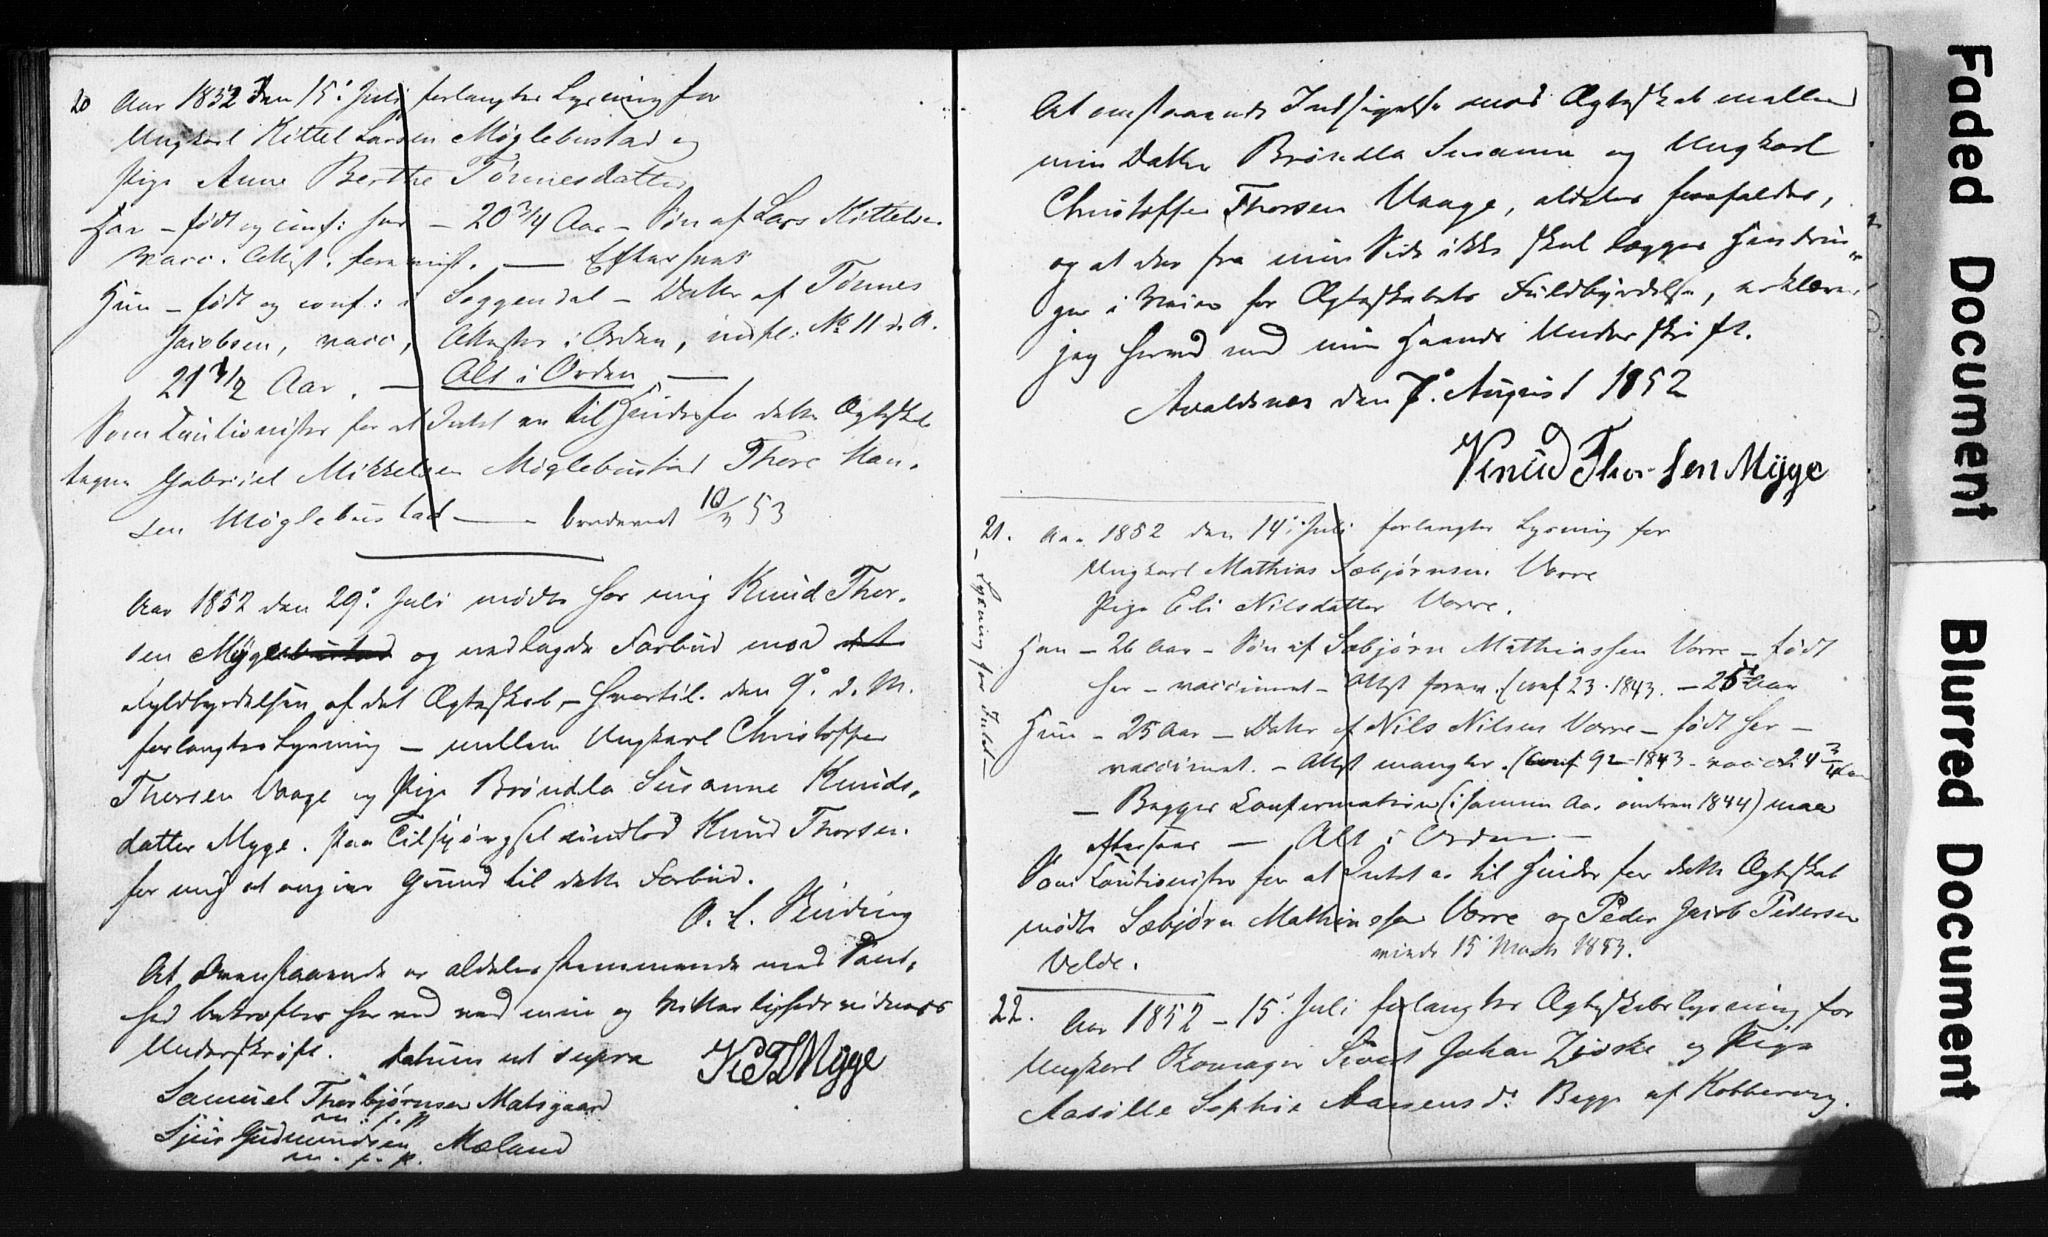 20 Aar 1852 den 15de Juli forlangtes Lysning for
Ungkarl Kittel Larsen Møglebustad og
Pige Anne Berthe Tønnesdatter
Han – født og conf: her – 20 3/4 Aar – Søn af Lars Kittelsen
vacc. Attest. foreviist. — Eftersees
Hun – født og conf: i Soggendal – Datter af Tønnes
Jacobsen, vacc, Attester i Orden, indfl: No 11 d. A.
21 1/2 Aar. — Alt i Orden —
Som Cautionister for at Intet er til Hinder for dette Ægteskab
tegne Gabriel Mikkelsen Møglebustad Thore Han-
sen Møglebustad — – 10/3 53
Aar 1852 den 29de Juli mødte for mig Knud Thor-
sen Myglebustad og nedlagde Forbud mod det
Fyldbyrdelsen af det Ægteskab, – hvortil den 9de d. M.
forlangtes Lysning – mellem Ungkarl Christoffer
Thorsen Vaage og Pige Brøndla Susanne Knuds-
datter Myge. Paa Tilspørgsel undlod Knud Thorsen
for mig at angive Grund til dette Forbud.
At Ovenstaaende er aldeles stemmende med Sand-
hed bekræftes herved ved min og Vitterlighedsvidners
Underskrift. datum ut supra K T S Myge
Samuel Thorbjørnsen Matsgaard
m. f. p.
Sjur Gudmundsen Mæland
m. f. p.
At omstaaende Indsigelse mod Ægteskab mellem
min Datter Brøndla Susanne og Ungkarl
Christoffer Thorsen Vaage, aldeles frafaldes,
og at der fra min Side ikke skal lægges Hindrin-
ger i Veien for Ægteskabets Fuldbyrdelse, erklærer
jeg herved med min Haands Underskrift.
Avaldsnes den 7de August 1852
Knud Thorsen Myge
21. Aar 1852 den 14de Juli forlangtes Lysning for
Ungkarl Mathias Sæbjørnsen Vorre
Pige Eli Nilsdatter Vorre.
Han – 26 Aar – Søn af Sæbjørn Mathiassen Vorre – født
her – vaccineret – Attst forev. (conf 23 - 1843. – 25 Aar
Hun – 25 Aar – Datter af Nils Nilsen Vorre – født her –
vaccineret. – Attst mangler. (conf 92 - 1843 - vacc 24 3/4 Aar
– Begges Confirmation (i samme Aar omtrent 1844) maa
eftersees — Alt i Orden —
Som Cautionister for at Intet er til Hinder for dette Ægteskab
mødte Sæbjørn Mathiassen Vorre og Peder Jacob Pedersen
Velde. viede 15 Marts 1853.
– Lysning for Intet –
22. Aar 1852 – 15de Juli forlangtes Ægteskabslysning for
Ungkarl Skomager Sivert Johan Ziøske og Pige
Rasille Sophie Aanensdr. Begge af Kobbervig.
Faded Document
Blurred Document